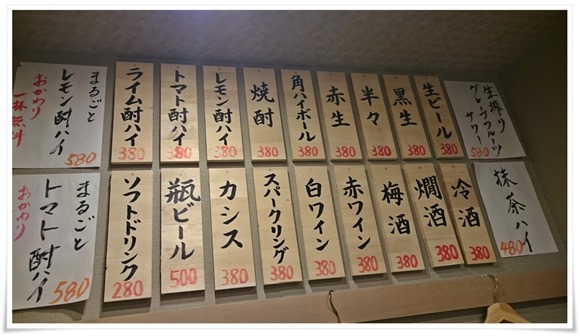 生搾り
グレープフルーツ
サワー
580
生ビール
380
黒生
380
半々
380
赤生
380
角ハイボール
380
焼酎
380
レモン酎ハイ
380
トマト酎ハイ
380
ライム酎ハイ
380
まるごと
レモン酎ハイ
580
おかわり
一杯無料
抹茶ハイ
480
冷酒
380
燗酒
380
梅酒
380
赤ワイン
380
白ワイン
380
スパークリング
380
カシス
380
瓶ビール
500
ソフトドリンク
280
まるごと
トマト酎ハイ
580
おかわり